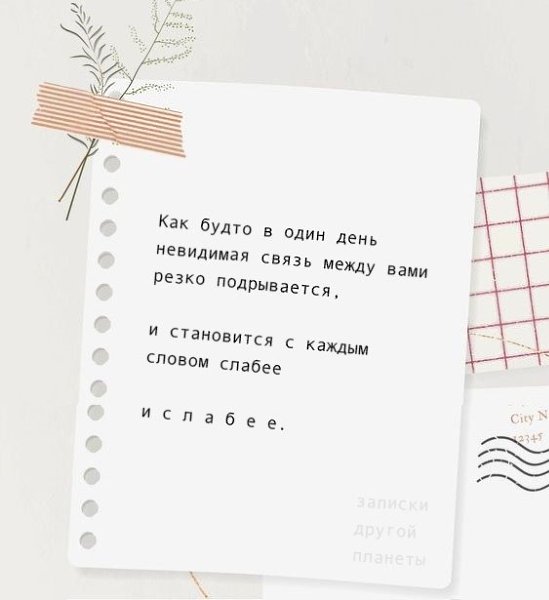 Как будто в один день
невидимая связь между вами
резко подрывается,
и становится с каждым
словом слабее
и с л а б е е.
записки
другой
планеты
City N
12345